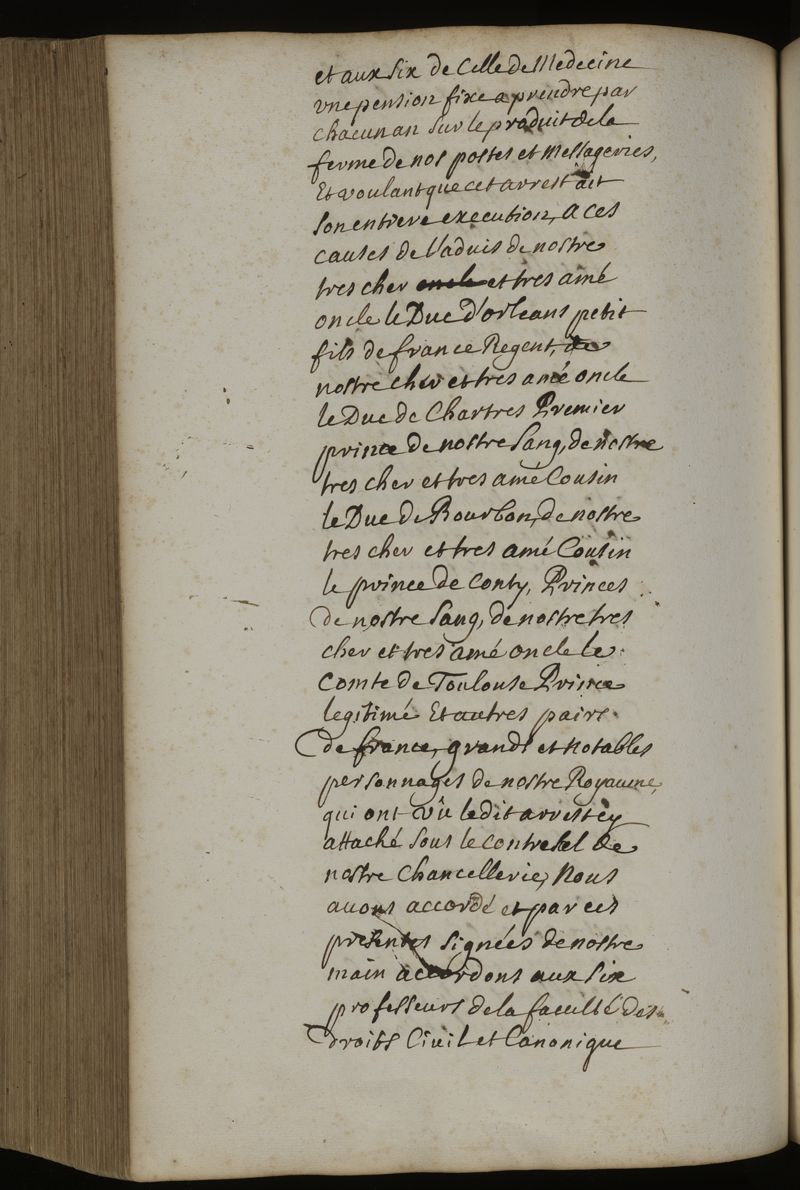 et aux six de Celle de Medecine
vne pension fixe a prendre par
chacun an sur le produit de la
ferme de nos postes et Messageries,
Et voulant que cet arrest ait
son entiere execution, A ces
causes de l'aduis de nostre
tres cher oncle et tres amé
oncle le Duc d'orleans petit
fils de france Regent, de
nostre cher et tres amé oncle
le Duc de Chartres Premier
prince de nostre Sang, de nostre
tres cher et tres amé Cousin
le Duc de Bourbon, de nostre
tres cher et tres amé Cousin
le prince de Conty, Princes
de nostre Sang, de nostre tres
cher et tres amé oncle le
Comte de Toulouse Prince
legitimé Et autres pairs
de france, grands et notables
personnages de nostre Royaume,
qui ont vû ledit arrest cy
attaché sous le contresel de
nostre Chancellerie, Nous
auons accordé et par ces
presentes signées de nostre
main accordons aux six
professeurs de la faculté des
droits Civil et Canonique